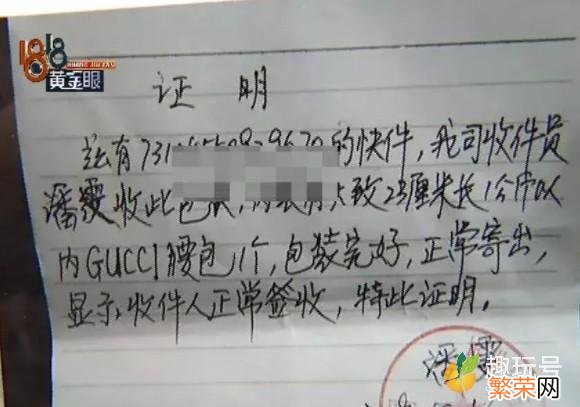 1818
黄金眼
证 明
兹有731 的快件，我司收件员
收此 致23厘米长1公斤以
内GUCCI腰包1个，包装完好，正常寄出，
显示收件人正常签收，特此证明。
趣玩号
繁荣网